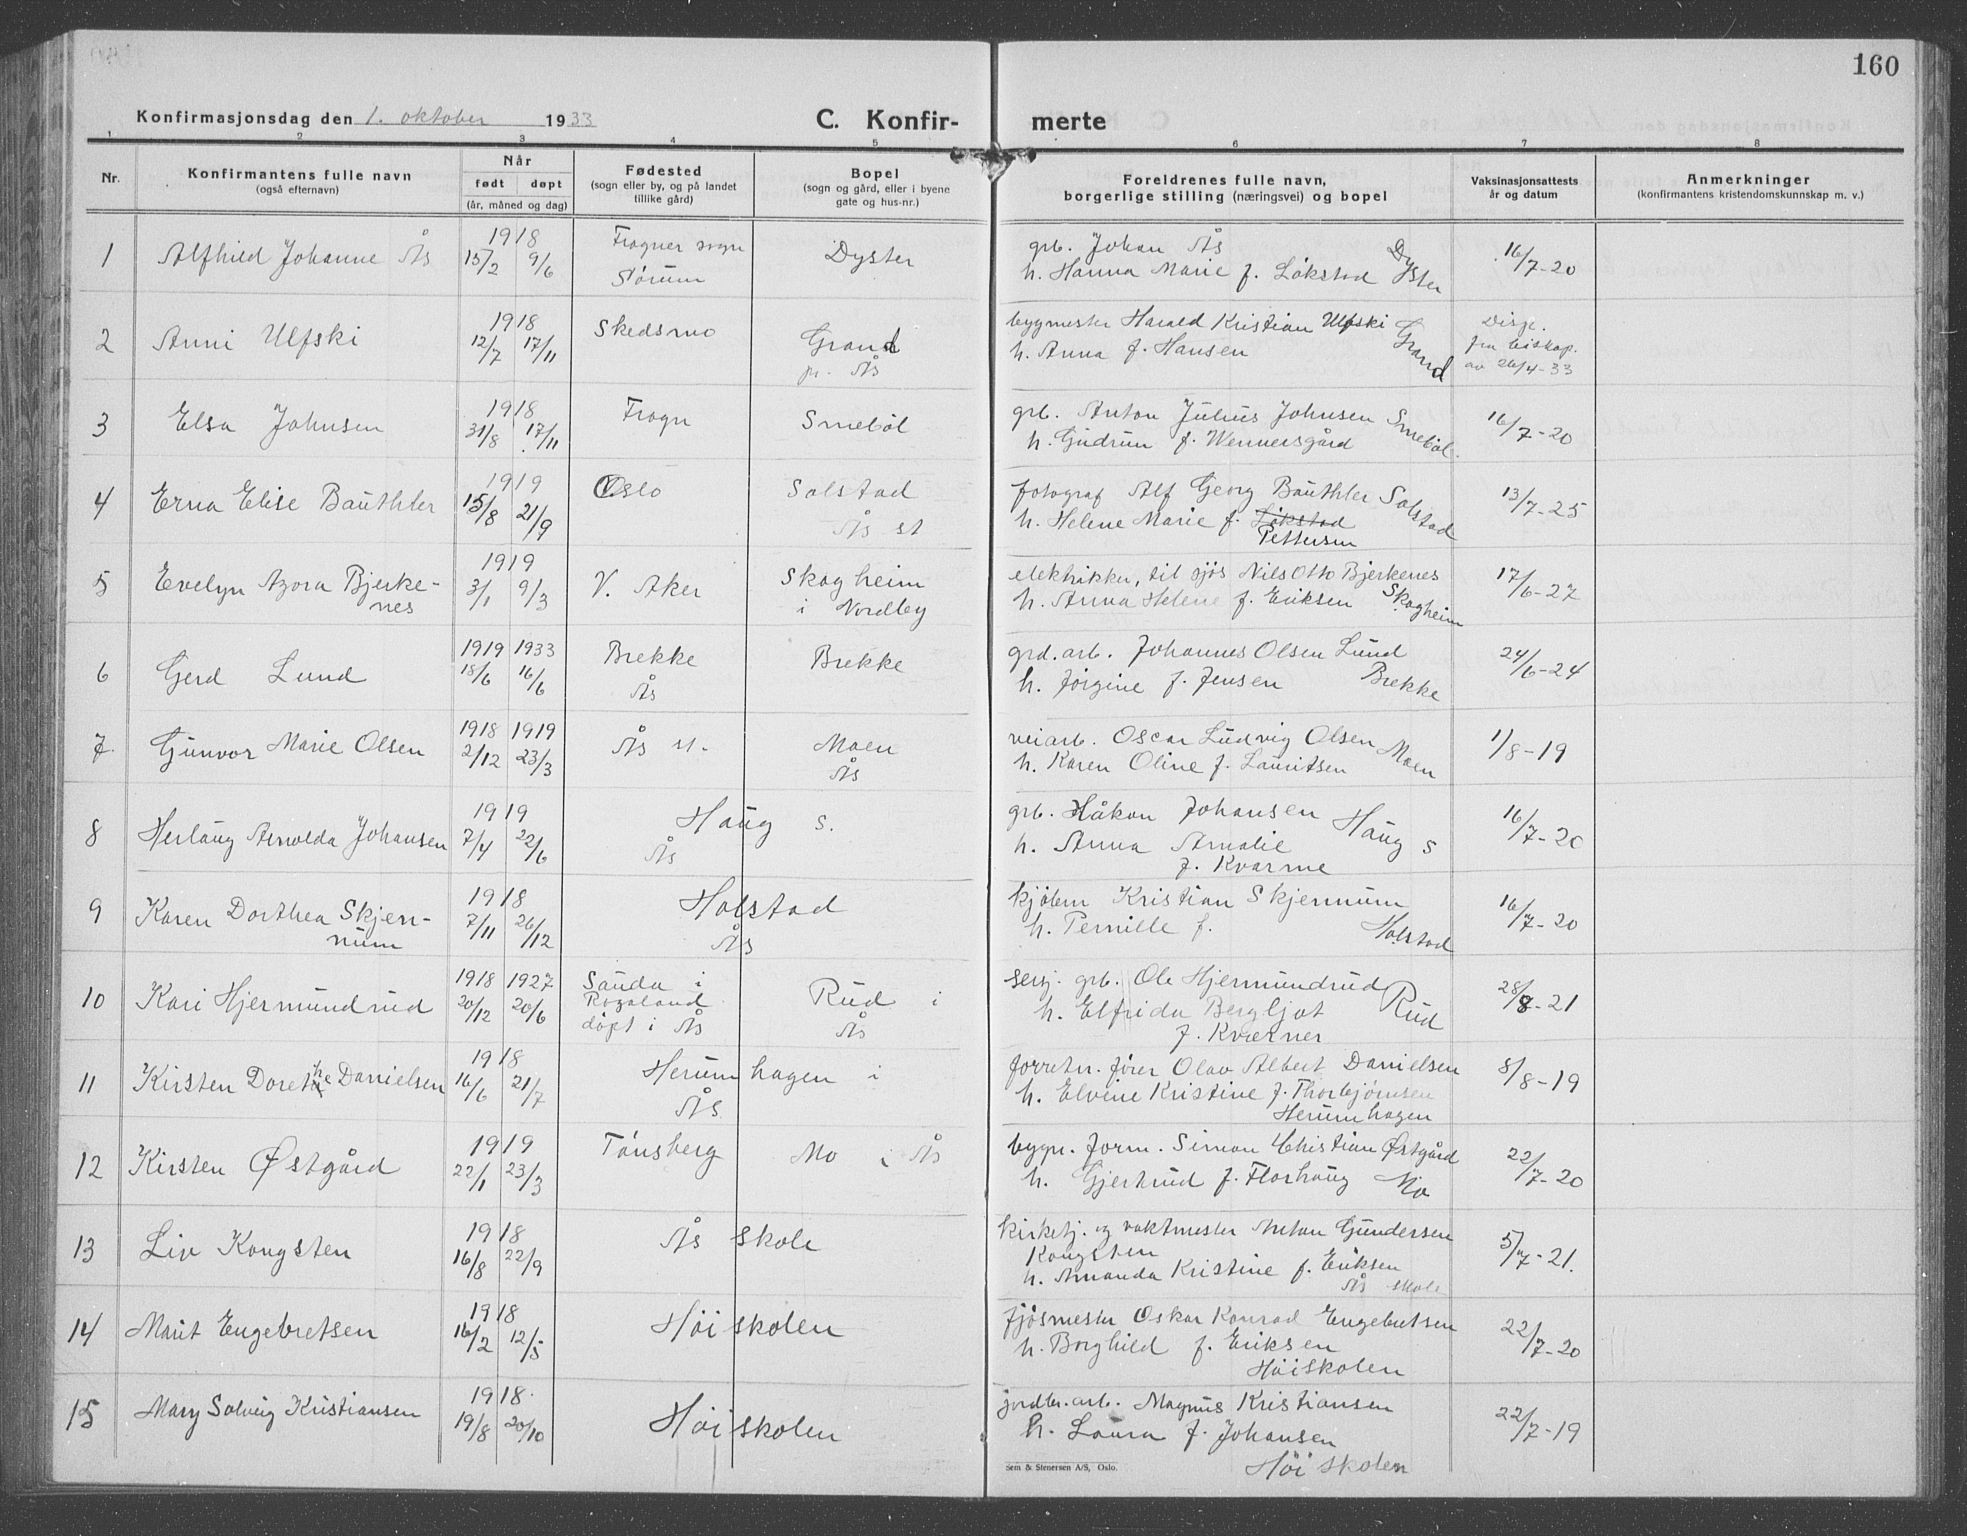 160
Konfirmasjonsdag den 1. oktober 1933
C. Konfir- merte
1 2 3 4 5 6 7 8
Nr.
Konfirmantens fulle navn
(også efternavn)
Når
født døpt
(år, måned og dag)
Fødested
(sogn eller by, og på landet
tillike gård)
Bopel
(sogn og gård, eller i byene
gate og hus-nr.)
Foreldrenes fulle navn,
borgerlige stilling (næringsvei) og bopel
Vaksinasjonsattests
år og datum
Anmerkninger
(konfirmantens kristendomskunnskap m. v.)
1 Alfhild Johanne Ås
1918
15/2 9/6
Frogner sogn
Sørum
Dyster
grb. Johan Ås
h. Hanna Marie f. Løkstad Dyster
16/7-20
2 Anni Ulfski
1918
12/7 17/11
Skedsmo
Grand
pr. Ås
bygmester Harald Kristian Ulfski
h. Anna f. Hansen Grand
Disp.
fra biskop.
av 26/4-33
3 Elsa Johnsen
1918
31/8 17/11
Frogn
Smebøl
grb. Anton Julius Johnsen
h. Gudrun f. Wennersgård Smebøl.
16/7-20
4 Erna Elise Bauthler
1919
15/8 21/9
Oslo
Solstad
Ås st
fotograf Alf Georg Bauthler Solstad
h. Helene Marie f. Løkstad
Pettersen
13/7-25
5 Evelyn Azora Bjerke-
nes
1919
3/1 9/3
V. Aker
Skogheim
i Nordby
elektriker, til sjøs Nils Otto Bjerkenes
h. Anna Helene f. Eriksen Skogheim
17/6-27
6 Gerd Lund
1919 1933
18/6 16/6
Brekke
Ås
Brekke
grd. arb. Johannes Olsen Lund
h. Jørgine f. Jensen Brekke
24/6-24
7. Gunvor Marie Olsen
1918 1919
2/12 23/3
Ås st.
Moen
Ås
veiarb. Oscar Ludvig Olsen
h. Karen Oline f. Lauritsen Moen
1/8-19
8 Herlaug Arnolda Johansen
1919
7/4 22/6
Haug s.
Ås
grb. Håkon Johansen
h. Anna Amalie Haug s
f. Kvarme
16/7-20
9 Karen Dorthea Skjen-
num
1918
7/11 26/12
Holstad
Ås
kjøbm Kristian Skjennum
h. Pernille f. Holstad
16/7-20
10 Kari Hjermundrud
1918 1927
20/12 20/6
Sauda i
Rogaland
døpt i Ås
Rud i
Ås
serj. grb. Ole Hjermundrud
h. Elfrida Bergljot Rud
f. Kværner
28/8-21
11 Kirsten Dorethe Danielsen
1918
16/6 21/7
Herumhagen i
Ås
forretn. fører Olav Albert Danielsen
h. Elvine Kristine f. Thorbjørnsen
Herumhagen
8/8-19
12 Kirsten Østgård
1919
22/1 23/3
Tønsberg
Mo i Ås
bygn. form. Simon Christian Østgård
h. Gjertrud f. Florhaug Mo
22/7-20
13 Liv Kongsten
1918
16/8 22/9
Ås skole
kirketj. og vaktmester Anton Gundersen
Kongsten
h. Amanda Kristine f. Eriksen
Ås skole
5/7-21.
14 Marit Engebretsen
1918
16/2 12/5
Høiskolen
fjøsmester Oskar Konrad Engebretsen
h. Borghild f. Eriksen
Høiskolen
22/7-20
15 Mary Solveig Kristiansen
1918.
19/8 20/10
Høiskolen
jordbr. arb. Magnus Kristiansen
h. Laura f. Johansen
Høiskolen
22/7-19
Sem & Stenersen A/S, Oslo.